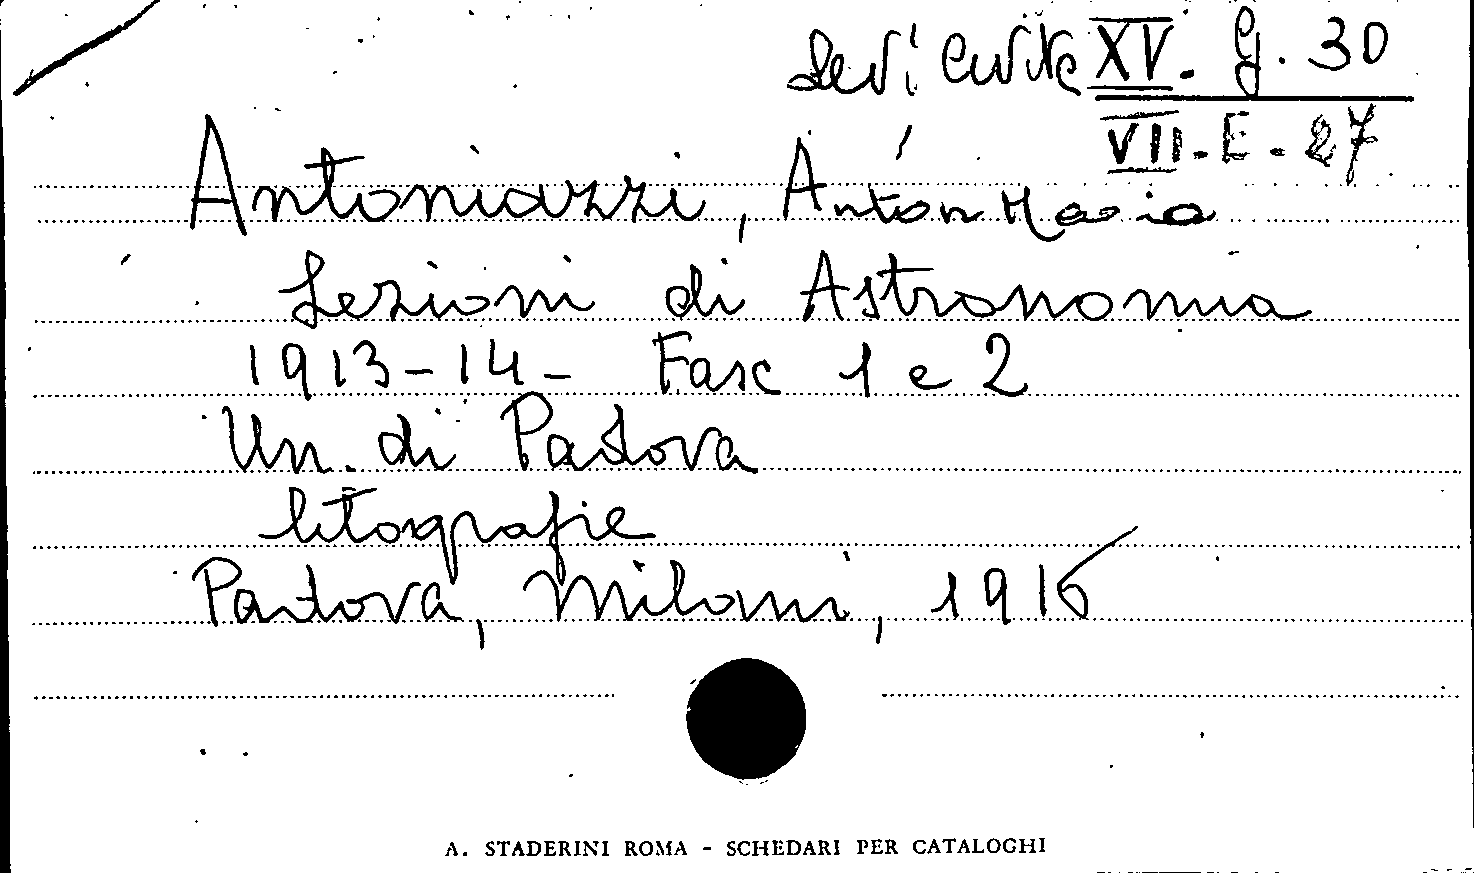 Levi Civita XV. G. 30
VII. E. 27
Antoniazzi, Anton Maria
Lezioni di Astronomia
1913-14- Fasc 1 e 2
Un. di Padova
litografie
Padova, Milani, 1916
A. STADERINI ROMA - SCHEDARI PER CATALOGHI